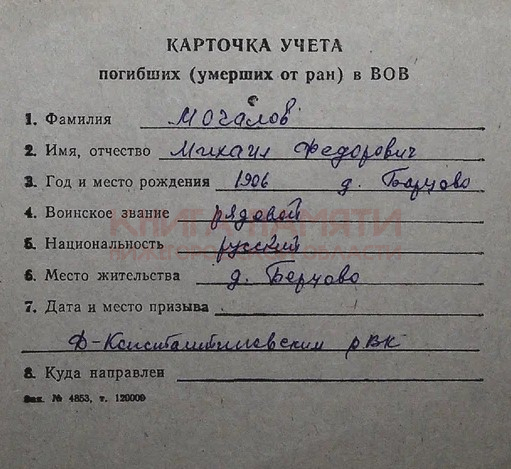 КАРТОЧКА УЧЕТА
погибших (умерших от ран) в ВОВ
1. Фамилия Мочалов
2. Имя, отчество Михаил Федорович
3. Год и место рождения 1906 д. Барцово
4. Воинское звание рядовой
КНИГА ПАМЯТИ
НИЖЕГОРОДСКОЙ ОБЛАСТИ
5. Национальность русский
6. Место жительства д. Берцово
7. Дата и место призыва
Д-Константиновским РВК
8. Куда направлен
Зак. № 4853, т. 120000